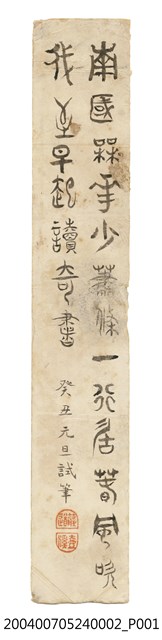 南國年少蕭條一居春風吹
我至早起讀奇書
癸丑元旦試筆
200400705240002_P001